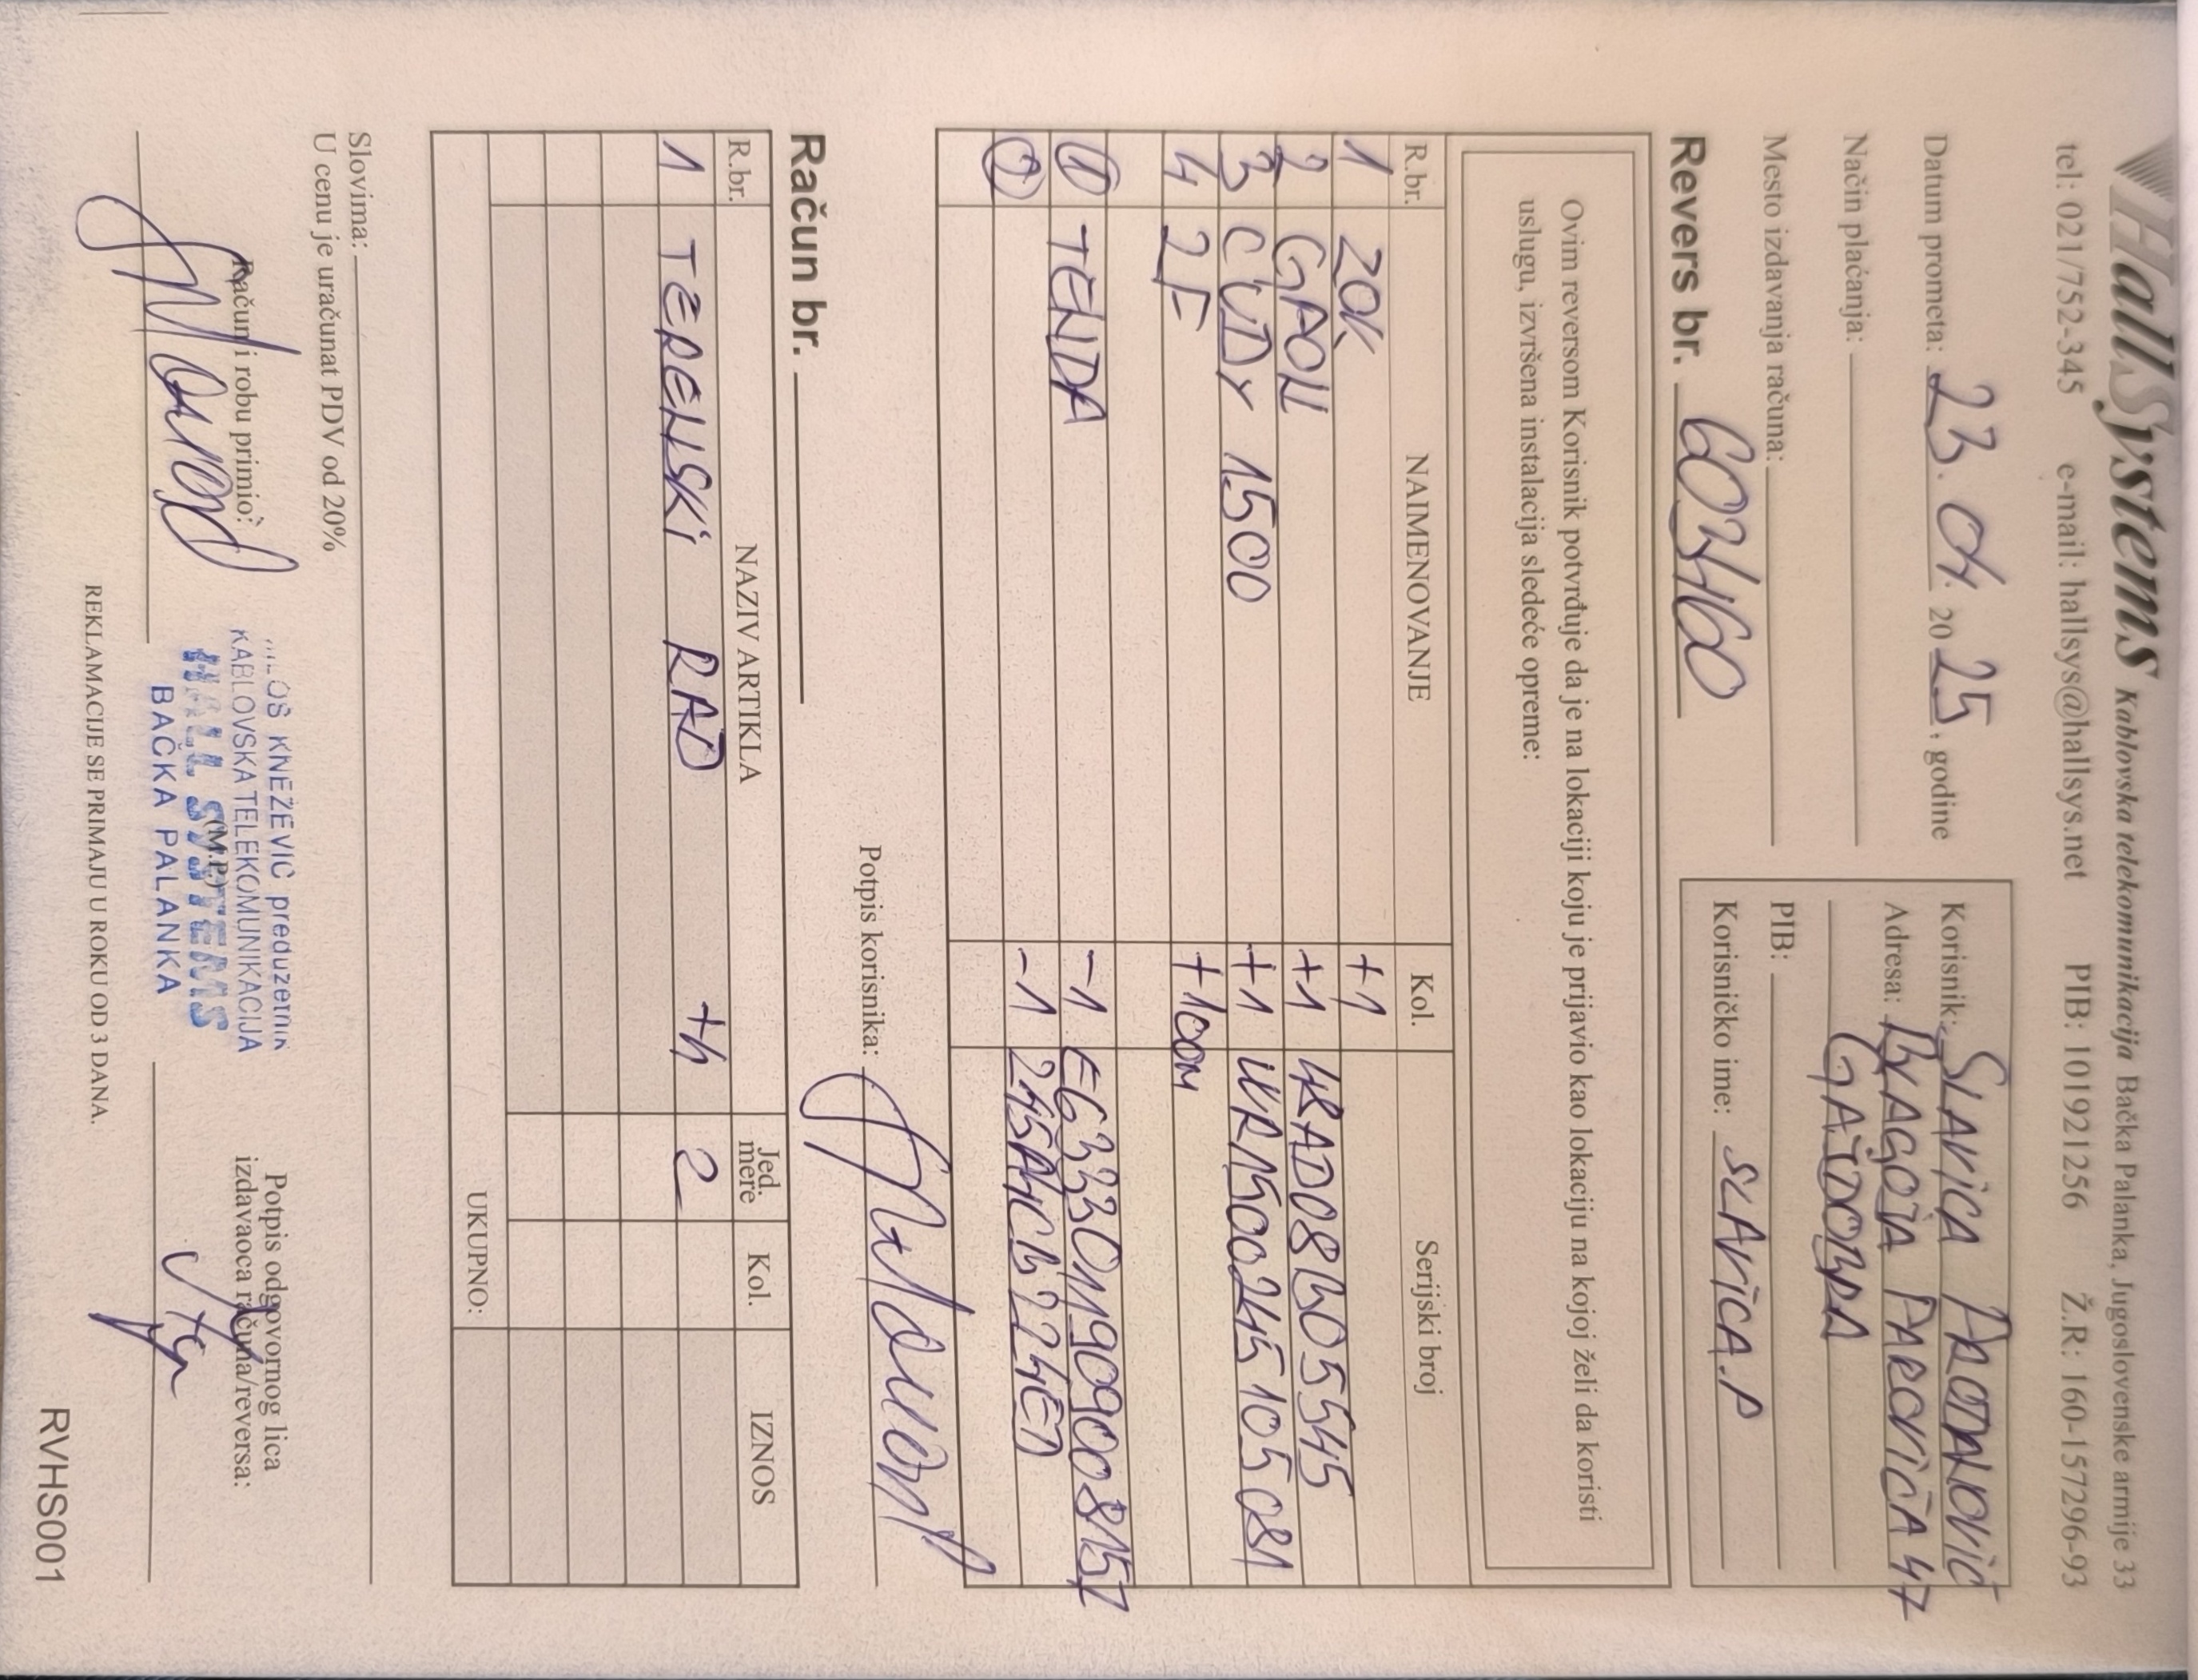 HallSystems Kablovska telekomunikacija Bačka Palanka, Jugoslovenske armije 33
tel: 021/752-345 e-mail: hallsys@hallsys.net PIB: 101921256 Ž.R: 160-157296-93
Datum prometa: 23. 04. 2025. godine
Način plaćanja:
Mesto izdavanja računa:
Korisnik: SLAVICA
Adresa: PAROVIĆA 47
GAJDOBRA
PIB:
Korisničko ime: SLAVICA.P
Revers br.
Ovim reversom Korisnik potvrđuje da je na lokaciji koju je prijavio kao lokaciju na kojoj želi da koristi
uslugu, izvršena instalacija sledeće opreme:
R.br. NAIMENOVANJE Kol. Serijski broj
1 ZOK +1
2 GPON +1
3 CUDY 1500 +1
4 2F +100M
1 TENDA -1
2 -1
Potpis korisnika:
Račun br.
R.br. NAZIV ARTIKLA Jed. mere Kol. IZNOS
1 TERENSKI RAD +h 2
UKUPNO:
Slovima:
U cenu je uračunat PDV od 20%
Račun i robu primio:
KNEŽEVIĆ preduzetnik
KABLOVSKA TELEKOMUNIKACIJA
HALL SYSTEMS
(M.P.)
BAČKA PALANKA
Potpis odgovornog lica
izdavaoca računa/reversa:
REKLAMACIJE SE PRIMAJU U ROKU OD 3 DANA.
RVHS001